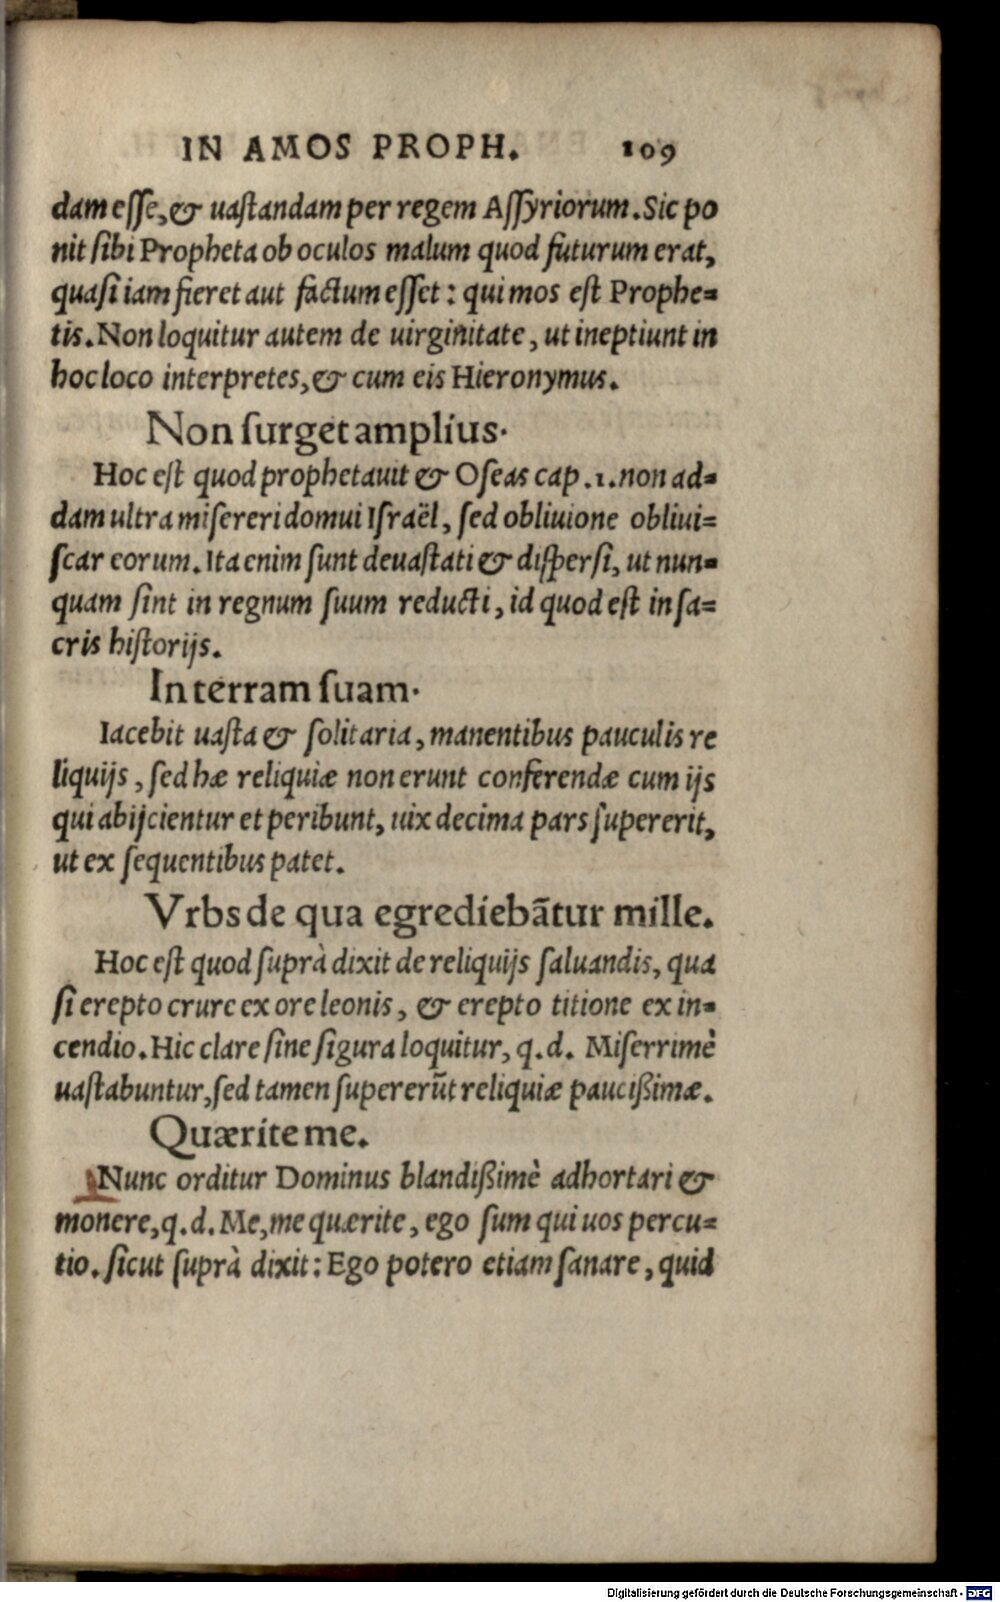 IN AMOS PROPH. 109
dam esse, & uastandam per regem Assyriorum. Sic po
nit sibi Propheta ob oculos malum quod futurum erat,
quasi iam fieret aut factum esset: qui mos est Prophe=
tis. Non loquitur autem de uirginitate, ut ineptiunt in
hoc loco interpretes, & cum eis Hieronymus.
Non surget amplius.
Hoc est quod prophetauit & Oseas cap. 1. non ad=
dam ultra misereri domui Israël, sed obliuione obliui=
scar eorum. Ita enim sunt deuastati & dispersi, ut nun=
quam sint in regnum suum reducti, id quod est in sa=
cris historijs.
In terram suam.
Iacebit uasta & solitaria, manentibus pauculis re
liquijs, sed hæ reliquiæ non erunt conferendæ cum ijs
qui abijcientur et peribunt, uix decima pars supererit,
ut ex sequentibus patet.
Vrbs de qua egrediebãtur mille.
Hoc est quod suprà dixit de reliquijs saluandis, qua
si erepto crure ex ore leonis, & erepto titione ex in=
cendio. Hic clare sine figura loquitur, q.d. Miserrimè
uastabuntur, sed tamen supererũt reliquiæ paucißimæ.
Quærite me.
Nunc orditur Dominus blandißimè adhortari &
monere, q.d. Me, me quærite, ego sum qui uos percu=
tio. sicut suprà dixit: Ego potero etiam sanare, quid
Digitalisierung gefördert durch die Deutsche Forschungsgemeinschaft - DFG